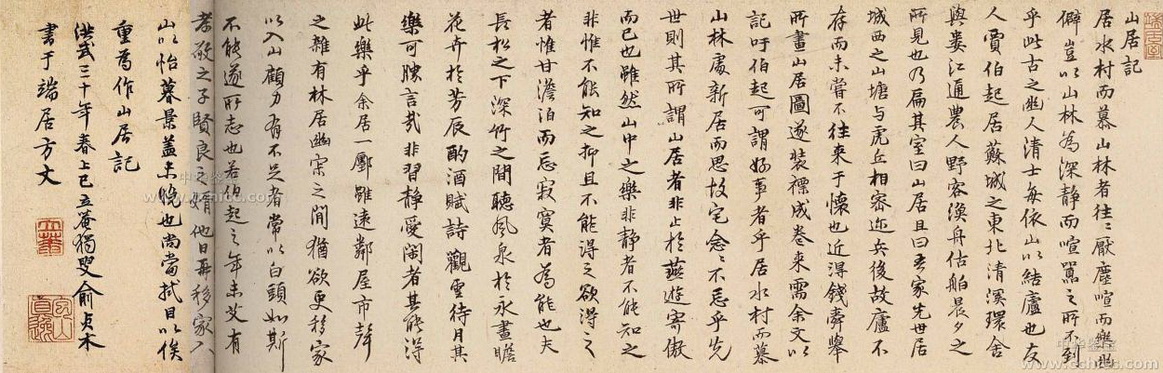 山居記
居水村而慕山林者往〻厭塵喧而樂幽
僻豈以山林為深静而喧囂之所不到
乎此古之幽人清士每依山以結廬也友
人賈伯起居蘇城之東北清溪環舍
與婁江通農人野客漁舟估舶晨夕之
所見也乃扁其室曰山居且曰吾家先世居
城西之山塘與虎丘相密迩兵後故廬不
存而未嘗不往來于懷也近得錢舜舉
所畫山居圖遂装褾成卷來需余文以
記吁伯起可謂好事者乎居水村而慕
山林處新居而思故宅念〻不忘乎先
世則其所謂山居者非止於燕遊寄傲
而已也雖然山中之樂非静者不能知之
非惟不能知之抑且不能得之欲得之
者惟甘澹泊而忘寂寞者為能也夫
長松之下深竹之間聽風泉於永晝瞻
花卉於芳辰酌酒賦詩觀雲待月其
樂可勝言哉非習静愛閑者其能得
此樂乎余居一鄽雖遠鄰屋市聲
之雜有林居幽寂之閒猶欲更移家
以入山顧力有不足者常以白頭如斯
不能遂所志也若伯起之年未艾有
孝敬之子賢良之婿他日再移家入
山以怡暮景蓋未晚也尚當拭目以俟
重為作山居記
洪武三十年春上巳立菴獨叟俞貞木
書于端居方丈
中华
www.cchicc.com
中华
www.cchicc.com